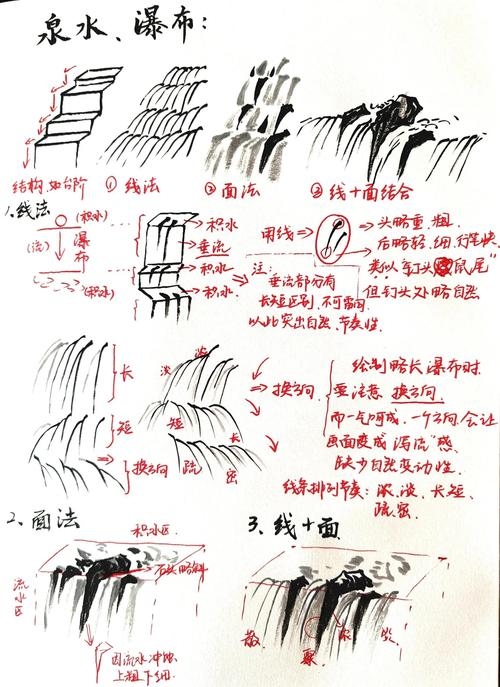 泉水、瀑布：
结构如台阶
①线法
②面法
③线十面结合
1.线法
(积水)
(流)
瀑布
(积水)
积水
垂流
积水
积水
用线
头略重、粗
后略轻、细、行笔快
类似"钉头鼠尾"
但钉头处略自然
注：
垂流部分有
长短区别,不可雷同
以此突出自然、节奏性.
长
短
换方向
淡
浓
短
长
疏
密
换方向
绘制略长瀑布时
要注意 换方向.
而一气呵成、一个方向会让
画面变成"泻流"感、
缺少自然变动性.
线条排列节奏：浓、淡、长、短、
疏、密.
2.面法
积水区.
石头略斜
流水区
因流水冲蚀
上粗下细.
3.线十面
散
聚